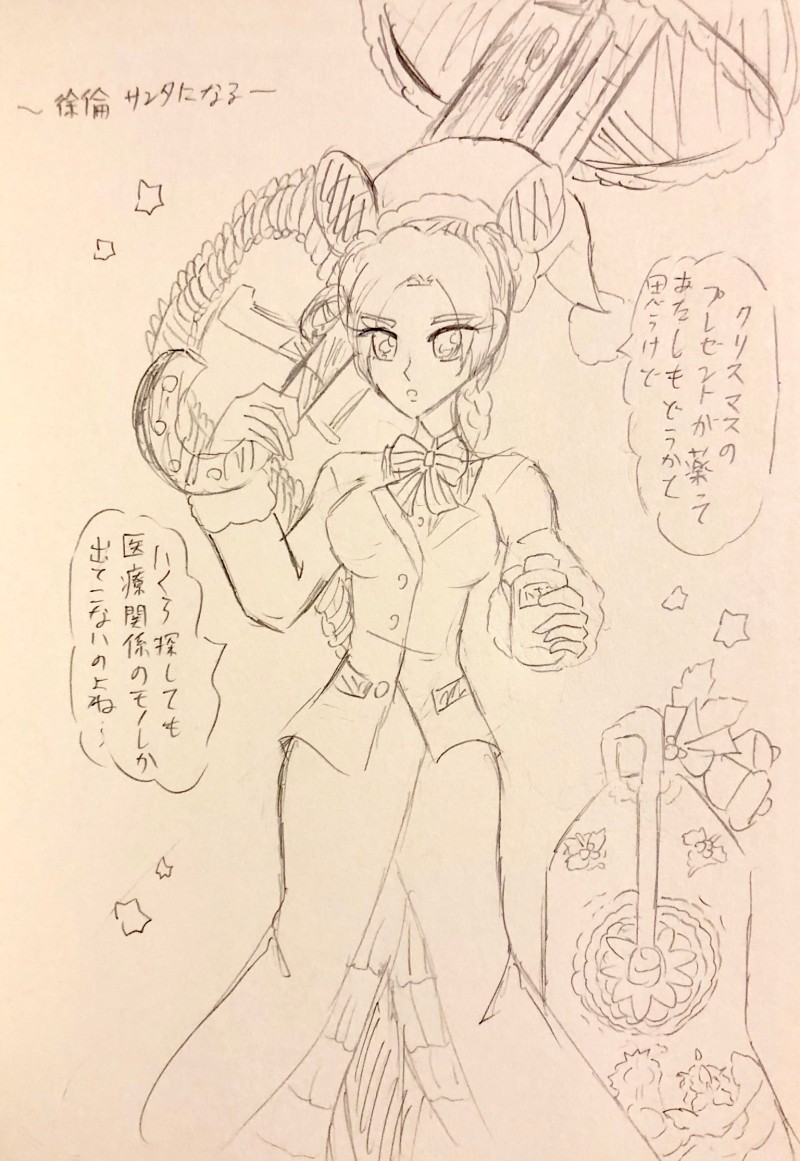 ～徐倫 サンタになるー
クリスマスの
プレゼントが薬って
あたしもどうかと
思うけど
いくら探しても
医療関係のモノしか
出てこないのよね…